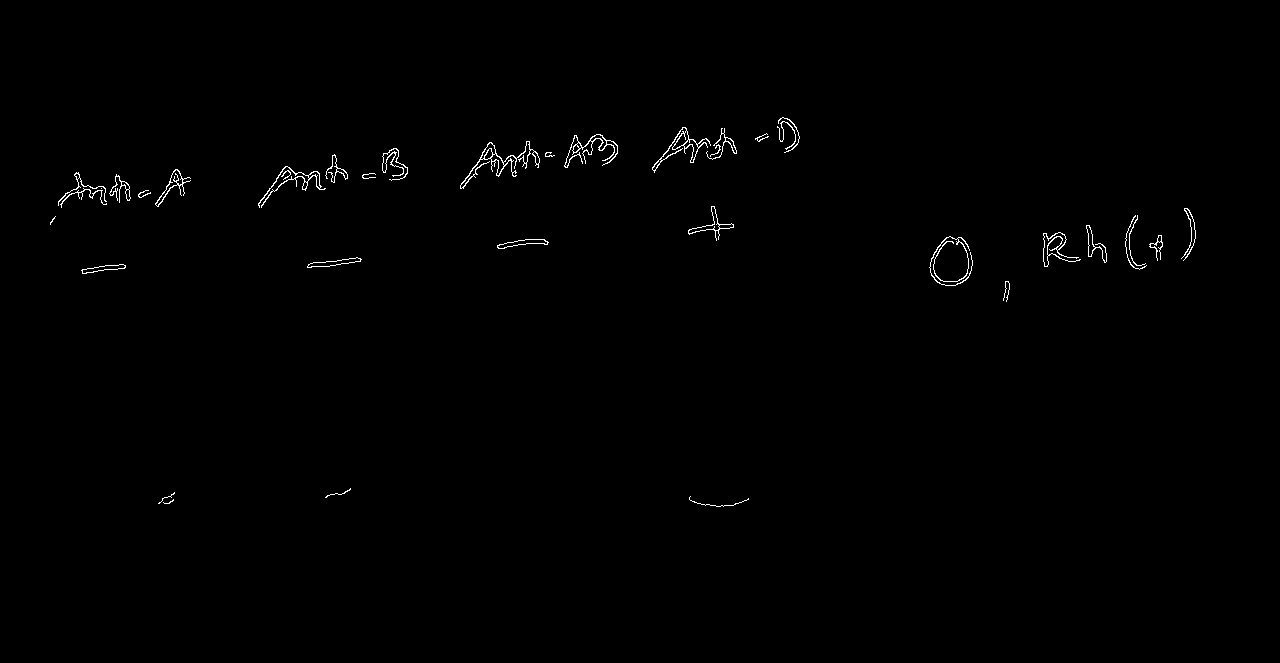 Anti-A Anti-B Anti-AB Anti-D
— — — + O, Rh(+)